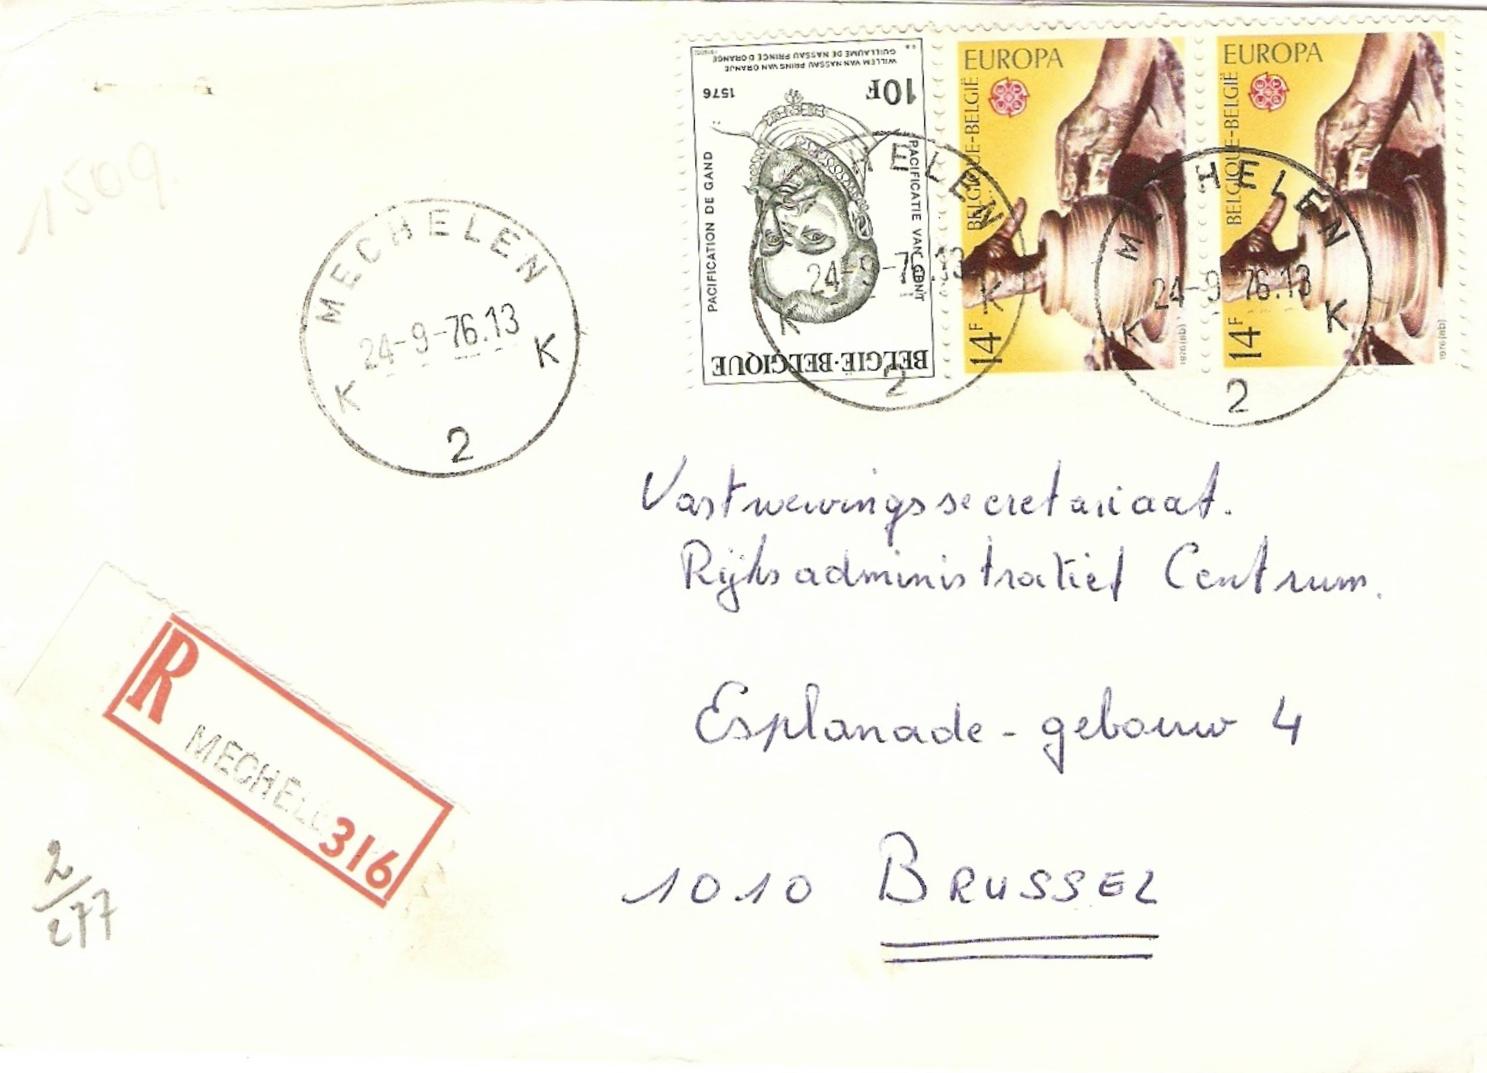 WILLEM VAN NASSAU PRINS VAN ORANJE
GUILLAUME DE NASSAU PRINCE D'ORANGE
10F 1576
PACIFICATION DE GAND
PACIFICATIE VAN GENT
BELGIË-BELGIQUE
EUROPA
BELGIQUE-BELGIË
14F
1976(8b)
EUROPA
BELGIQUE-BELGIË
14F
1976(8b)
1509
MECHELEN
24-9-76.13
K K
2
ELEN
24-9-76.13
K K
2
M HELEN
24-9 76.13
K K
2
Vastwervingssecretariaat.
Rijksadministratief Centrum.
Esplanade - gebouw 4
1010 BRUSSEL
R
MECHEL
316
2/277